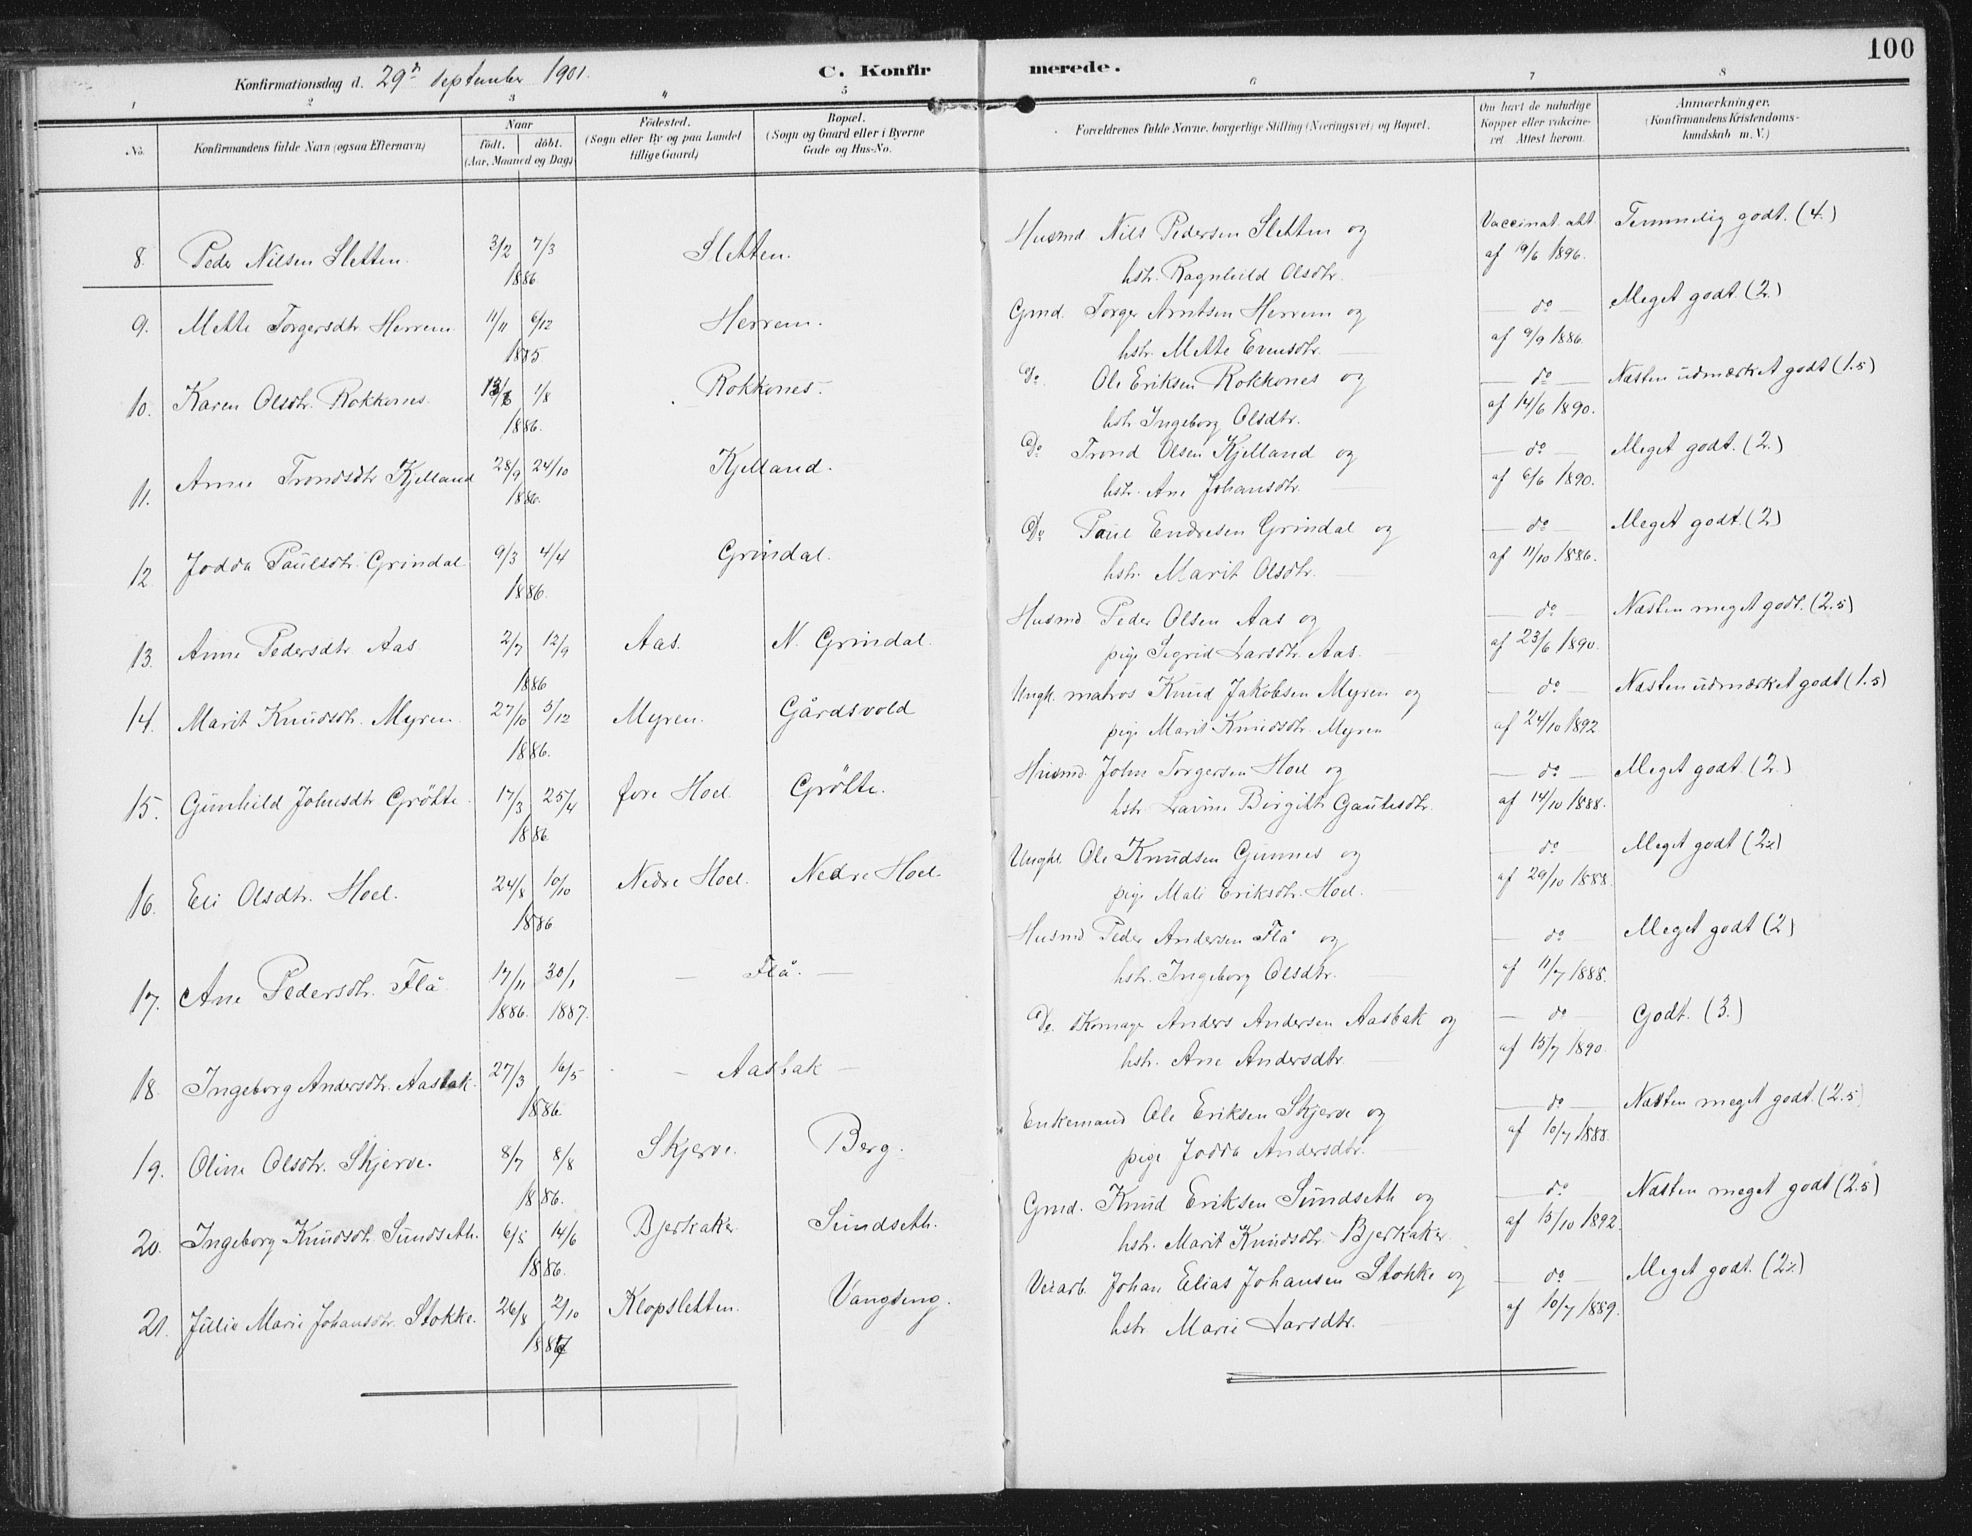 100
Konfirmationsdag d. 29de September 1901.
C. Konfirmerede.
1 2 3 4 5 6 7 8
No.
Konfirmandens fulde Navn (ogsaa Efternavn)
Naar
födt. döbt.
(Aar, Maaned og Dag)
Födested.
(Sogn eller By og paa Landet
tillige Gaard)
Bopæl.
(Sogn og Gaard eller i Byerne
Gade og Hus-No.
Forældrenes fulde Navne, borgerlige Stilling (Næringsvei) og Bopæl.
Om havt de naturlige
Kopper eller vakcine-
ret Attest herom.
Anmærkninger.
(Konfirmandens Kristendoms-
kundskab m. V.)
8. Peder Nilsen Sletten. 3/2 7/3 Sletten. Husmd Nils Pedersen Sletten og Vaccinat. att Temmelig godt. (4.)
1886 hstr. Ragnhild Olsdtr. af 19/6 1896.
9. Mette Torgersdtr Herrem 11/11 6/12 Herrem. Gmd. Torger Arntsen Herrem og — do — Meget godt. (2.)
1885 hstr. Mette Evensdtr. af 9/9 1886.
10. Karen Olsdtr. Rokkones. 13/6 1/8 Rokkones. Do. Ole Eriksen Rokkones og — do — Næsten udmærket godt (1.5)
1886. hstr Ingeborg Olsdtr. af 14/6 1890.
11. Anne Trondsdtr Kjelland 28/9 24/10 Kjelland. Do Trond Olsen Kjelland og — do — Meget godt. (2.)
1886. hstr. Ane Johansdtr. af 6/6 1890.
12. Jodda Paulsdtr. Grindal 9/3 4/4 Grindal. Do Paul Endresen Grindal og — do — Meget godt. (2)
1886. hstr. Marit Olsdtr. af 11/10 1886.
13. Anne Pedersdtr. Aas 2/7 12/9 Aas. N. Grindal. Husmd Peder Olsen Aas og — do — Næsten meget godt. (2.5)
1886 pige Sigrid Larsdtr. Aas. af 23/6 1890.
14. Marit Knudsdtr. Myren. 27/10 5/12 Myren. Gårdsvold Ungk. matros Knud Jakobsen Myren og — do — Næsten udmærket godt (1.5)
1886. pige Marit Knudsdtr. Myren af 24/10 1892
15. Gunhild Johnsdtr Grölte. 17/3 25/4 Øvre Hoel Grölte. Husmd. John Torgersen Hoel og — do — Meget godt. (2.)
1886 hstr. Lavine Birgitte Gautesdtr. af 14/10 1888.
16. Eli Olsdtr. Hoel. 24/8 10/10 Nedre Hoel. Nedre Hoel. Ungkl. Ole Knudsen Gunnes og — do — Meget godt (2.)
1886 pige Mali Eriksdtr. Hoel. af 29/10 1888.
17. Ane Pedersdtr. Flå 17/11 30/1 — Flå. — Husmd Peder Andersen Flå og — do — Meget godt (2)
1886. 1887. hstr. Ingeborg Olsdtr. af 11/7 1888.
18. Ingeborg Andersdtr. Aasbak. 27/3 16/5 — Aasbak — Do. Skomager Anders Andersen Aasbak og — do — Godt. (3.)
1886. hstr. Ane Andersdtr. af 15/7 1890
19. Oline Olsdtr. Skjerve. 8/7 8/8 Skjerve. Berg. Enkemand Ole Eriksen Skjerve og — do — Næsten meget godt. (2.5)
1886. pige Jodda Andersdtr. af 10/7 1888.
20. Ingeborg Knudsdtr. Sundseth. 6/5 14/6 Bjerkaker Sundseth. Gmd. Knud Eriksen Sundseth og — do — Næsten meget godt (2.5)
1886. hstr. Marit Knudsdtr. Bjerkaker. af 15/10 1892.
21. Jullie Marie Johansdtr. Stokke. 26/8 2/10 Klopsletten. Vangseng. Veiarb. Johan Elias Johansen Stokke og — do — Meget godt. (2.)
1887 hstr. Marie Larsdtr. af 10/7 1889.